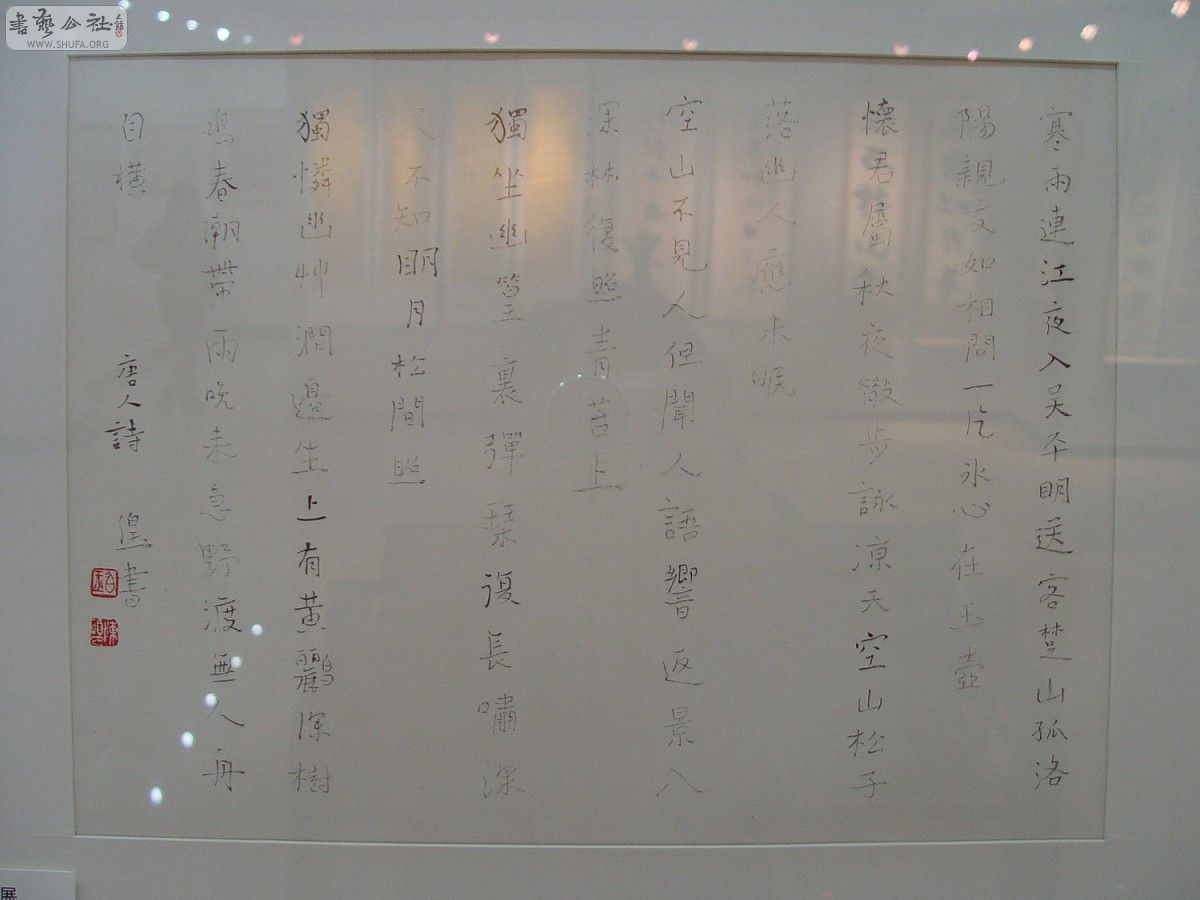 書藝公社
WWW.SHUFA.ORG
寒雨連江夜入吳平明送客楚山孤洛
陽親友如相問一片冰心在玉壺
懷君屬秋夜散步詠涼天空山松子
落幽人應未眠
空山不見人但聞人語響返景入
深林復照青苔上
獨坐幽篁裏彈琹復長嘯深
人不知明月松間照
獨憐幽艸澗邊生上有黃鸝深樹
鳴春潮帶雨晚來急野渡無人舟
自橫
唐人詩 書
展